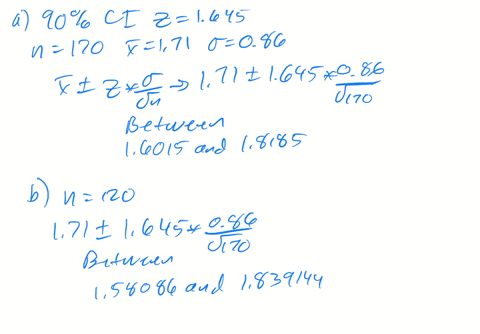 a) 90% CI z=1.645
n=170 x̄=1.71 σ=0.86
x̄ ± z * σ/√n → 1.71 ± 1.645 * 0.86/√170
Between
1.6015 and 1.8185
b) n=120
1.71 ± 1.645 * 0.86/√170
Between
1.58086 and 1.839144